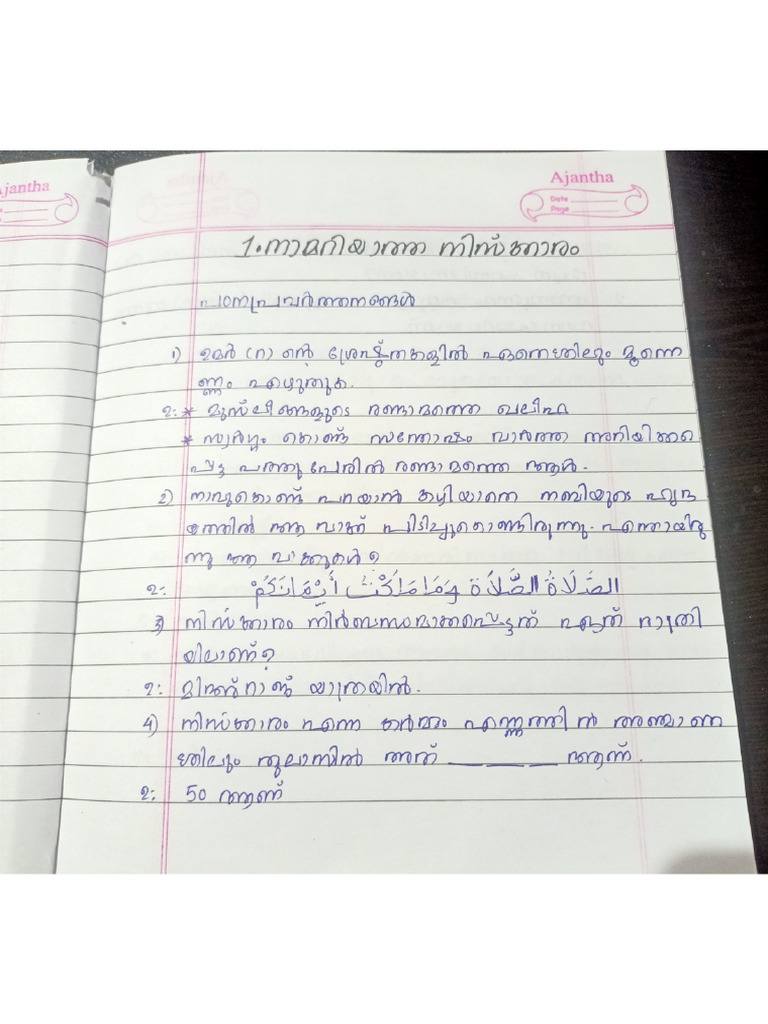 Ajantha
Ajantha
Date
Page
1. നാമറിയാത്ത നിസ്ക്കാരം
പഠനപ്രവർത്തനങ്ങൾ
1) ഉമർ (റ) ന്റെ ശ്രേഷ്ഠതകളിൽ ഏതെങ്കിലും മൂന്നെ
ണ്ണം എഴുതുക.
ഉ: * മുസ്ലീങ്ങളുടെ രണ്ടാമത്തെ ഖലീഫ
* സ്വർഗ്ഗം കൊണ്ട് സന്തോഷ വാർത്ത അറിയിക്കപ്പെ
ട്ട പത്തു പേരിൽ രണ്ടാമത്തെ ആൾ.
2) നാവുകൊണ്ട് പറയാൻ കഴിയാതെ നബിയുടെ ഹൃദ
യത്തിൽ ആ വാക്ക് പിടിച്ചുകൊണ്ടിരുന്നു. എന്തായിരു
ന്നു ആ വാക്കുകൾ ?
ഉ: الصَّلَاةُ الصَّلَاةَ وَمَا مَلَكَتْ أَيْمَانُكُمْ
3) നിസ്ക്കാരം നിർബന്ധമാക്കപ്പെട്ടത് ഏത് രാത്രി
യിലാണ്?
ഉ: മിഅ്റാജ് യാത്രയിൽ.
4) നിസ്ക്കാരം എന്ന കർമ്മം എണ്ണത്തിൽ അഞ്ചാണെ
ങ്കിലും തുലാസിൽ അത് ______ ആണ്.
ഉ: 50 ആണ്